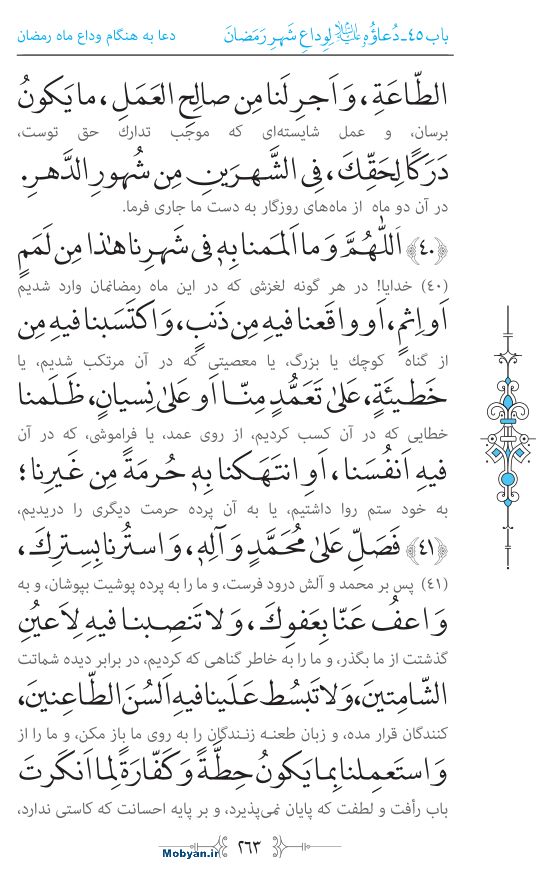 باب ٤٥-دُعاؤُهُ عليه‌السلام لِوِداعِ شَهرِ رَمَضانَ دعا به هنگام وداع ماه رمضان
الطّاعَةِ، وَ اَجرِ لَنا مِن صالِحِ العَمَلِ، ما يَكونُ
برسان، و عمل شایسته‌ای که موجَب تدارك حق توست،
دَرَكًا لِحَقِّكَ، فِی الشَّهرَينِ مِن شُهورِ الدَّهرِ.
در آن دو ماه از ماه‌های روزگار به دست ما جاری فرما.
﴿٤٠﴾ اَللّٰهُمَّ وَ ما اَلمَمنا بِهٖ فی شَهرِنا هٰذا مِن لَمَمٍ
(٤٠) خدایا! در هر گونه لغزشی که در این ماه رمضانمان وارد شدیم
اَو اِثمٍ، اَو واقَعنا فيهِ مِن ذَنبٍ، وَ اكتَسَبنا فيهِ مِن
از گناه کوچك یا بزرگ، یا معصیتی که در آن مرتکب شدیم، یا
خَطيئَةٍ، عَلیٰ تَعَمُّدٍ مِنّا اَو عَلیٰ نِسيانٍ، ظَلَمنا
خطایی که در آن کسب کردیم، از روی عمد، یا فراموشی، که در آن
فيهِ اَنفُسَنا، اَوِ انتَهَكنا بِهٖ حُرمَةً مِن غَيرِنا؛
به خود ستم روا داشتیم، یا به آن پرده حرمت دیگری را دریدیم،
﴿٤١﴾ فَصَلِّ عَلیٰ مُحَمَّدٍ وَ آلِهٖ، وَ استُرنا بِسِترِكَ،
(٤١) پس بر محمد و آلش درود فرست، و ما را به پرده پوشیت بپوشان، و به
وَ اعفُ عَنّا بِعَفوِكَ، وَ لا تَنصِبنا فيهِ لِاَعيُنِ
گذشتت از ما بگذر، و ما را به خاطر گناهی که کردیم، در برابر دیده شماتت
الشّامِتينَ، وَ لا تَبسُط عَلَينا فيهِ اَلسُنَ الطّاعِنينَ،
کنندگان قرار مده، و زبان طعنه زنندگان را به روی ما باز مکن، و ما را از
وَ استَعمِلنا بِما يَكونُ حِطَّةً وَ كَفّارَةً لِما اَنكَرتَ
باب رأفت و لطفت که پایان نمی‌پذیرد، و بر پایه احسانت که کاستی ندارد،
٢٦٣
Mobyan.ir